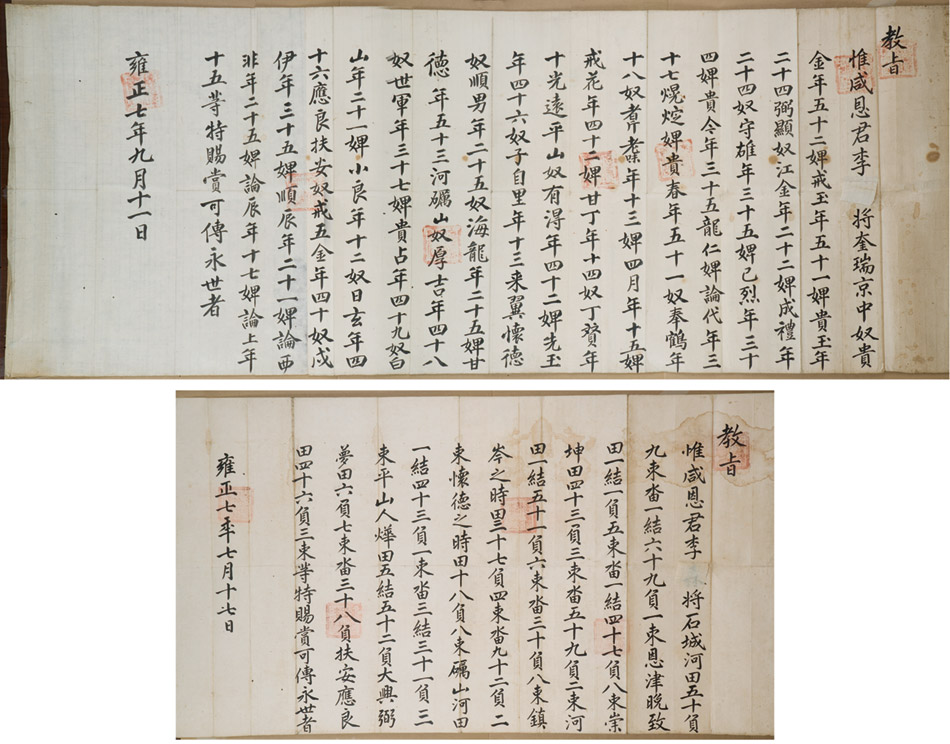 教旨
惟咸恩君李 將奎瑞京中奴貴
金年五十二婢戒玉年五十一婢貴玉年
二十四弼顯奴江金年二十二婢成禮年
二十四奴守雄年三十五婢已烈年三十
四婢貴今年三十五龍仁婢論代年三
十七熀婢貴春年五十一奴奉鶴年
十八奴耆年十三婢四月年十五婢
戒花年四十二婢甘丁年十四奴丁賛年
十光遠平山奴有淂年四十二婢先玉
年四十六奴子自里年十三來翼懷德
奴順男年二十五奴海龍年二十五婢甘
德年五十三河礪山奴厚吉年四十八
奴世軍年三十七婢貴占年四十九奴白
山年二十一婢小良年十二奴日玄年四
十六應良扶安奴戒五金年四十奴戌
伊年三十五婢順辰年二十一婢論西
非年二十五婢論辰年十七婢論上年
十五等特賜賞可傳永世者
雍正七年九月十一日
教旨
惟咸恩君李 將石城河田五十負
九束畓一結六十九負一束恩津晩致
田一結一負五束畓一結四十七負八束崇
坤田四十三負三束畓五十九負二束河
田一結五十一負六束畓三十負八束鎮
岑之時田三十七負四束畓九十二負二
束懷德之時田十八負八束礪山河田
一結四十三負一束畓三結三十一負三
束平山人燁田五結五十二負大興弼
夢田六負七束畓三十八負扶安應良
田四十六負三束等特賜賞可傳永世者
雍正七年七月十七日